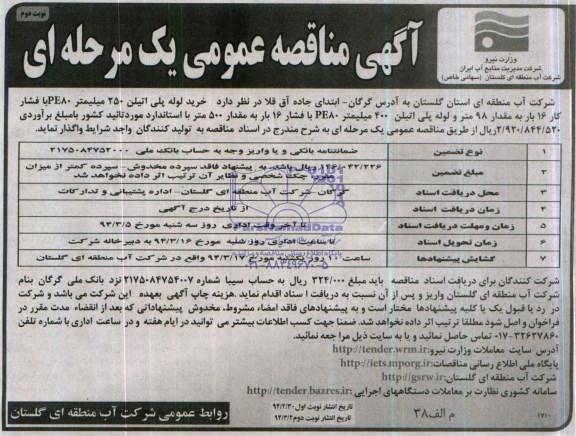 نوبت دوم
آگهی مناقصه عمومی یک مرحله ای
وزارت نیرو
شرکت مدیریت منابع آب ایران
شرکت آب منطقه ای گلستان (سهامی خاص)
شرکت آب منطقه ای استان گلستان به آدرس گرگان- ابتدای جاده آق قلا در نظر دارد خرید لوله پلی اتیلن ۲۵۰ میلیمتر PE۸۰ با فشار
کار ۱۶ بار به مقدار ۹۸ متر و لوله پلی اتیلن ۴۰۰ میلیمتر PE۸۰ با فشار ۱۶ بار به مقدار ۵۰۰ متر با استاندارد موردتائید کشور بامبلغ برآوردی
۲/۹۲۰/۸۴۴/۵۲۰ ریال از طریق مناقصه عمومی یک مرحله ای به شرح مندرج در اسناد مناقصه به تولید کنندگان واجد شرایط واگذار نماید.
۱ نوع تضمین ضمانتنامه بانکی و یا واریز وجه به حساب بانک ملی ۲۱۷۵۰۸۴۷۵۲۰۰۰
۲ مبلغ تضمین ۱۴۶/۰۴۲/۲۲۶ ریال باشد. به پیشنهاد فاقد سپرده مخدوش- سپرده کمتر از میزان
مقرر، چک شخصی و نظایر آن ترتیب اثر داده نخواهد شد
۳ محل دریافت اسناد گرگان- شرکت آب منطقه ای گلستان- اداره پشتیبانی و تدارکات
۴ زمان دریافت اسناد از تاریخ درج آگهی
۵ زمان ومهلت دریافت اسناد تا آخر وقت اداری روز سه شنبه مورخ ۹۴/۳/۵
۶ زمان تحویل اسناد تا ساعت اداری روز شنبه مورخ ۹۴/۳/۱۶ به دبیرخانه شرکت
۷ گشایش پیشنهادها ساعت ۱۰ روز یکشنبه مورخ ۹۴/۳/۱۷ واقع در شرکت آب منطقه ای گلستان
شرکت کنندگان برای دریافت اسناد مناقصه باید مبلغ ۳۲۴/۰۰۰ ریال به حساب سیبا شماره ۲۱۷۵۰۸۴۷۵۴۰۰۷ نزد بانک ملی گرگان بنام
شرکت آب منطقه ای گلستان واریز و پس از آن نسبت به دریافت ا سناد اقدام نماید .هزینه چاپ آگهی بعهده این شرکت می باشد و شرکت
در رد یا قبول یک یا کلیه پیشنهادها مختار است و به پیشنهادهای فاقد امضاء مشروط، مخدوش پیشنهاداتی که بعد از انقضاء مدت مقرر در
فراخوان و اصل شود مطلقا ترتیب اثر داده نخواهد شد. ضمنا جهت کسب اطلاعات بیشتر می توانید در ایام هفته و در ساعت اداری با شماره تلفن
۰۱۷-۳۲۶۲۷۸۶۰ تماس حاصل نمائید و یا به سایت ذیل مرا جعه نمائید.
آدرس سایت معاملات وزارت نیرو: http://tender.wrm.ir
پایگاه ملی اطلاع رسانی مناقصات: http://iets.mporg.ir
شرکت آب منطقه ای گلستان: http://gsrw.ir
سامانه کشوری نظارت بر معاملات دستگاههای اجرایی: http://tender.bazres.ir
م الف ۳۸
تاریخ انتشار نوبت اول ۹۴/۲/۳۰
تاریخ انتشار نوبت دوم ۹۴/۳/۲
روابط عمومی شرکت آب منطقه ای گلستان